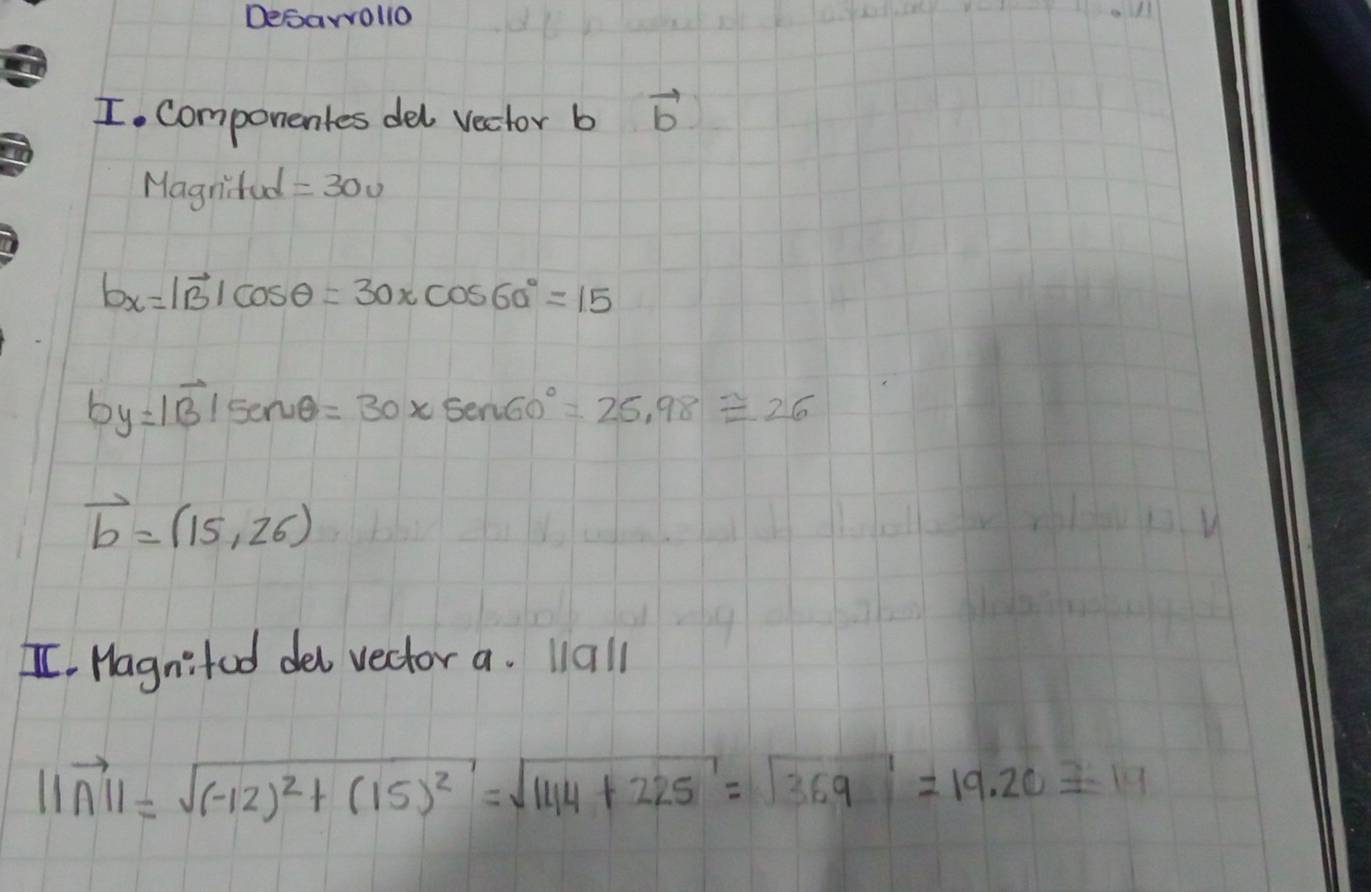 Desarrollo
I. Componentes del vector b \vec{b}
Magnitud = 30u
bx = |\vec{B}| cosθ = 30 x cos 60° = 15
by = |\vec{B}| senθ = 30 x sen 60° = 25.98 ≅ 26
\vec{b} = (15, 26)
II. Magnitud del vector a. ||a||
||\vec{n}|| = √(-12)² + (15)² = √144 + 225 = √369 = 19.20 ≅ 19